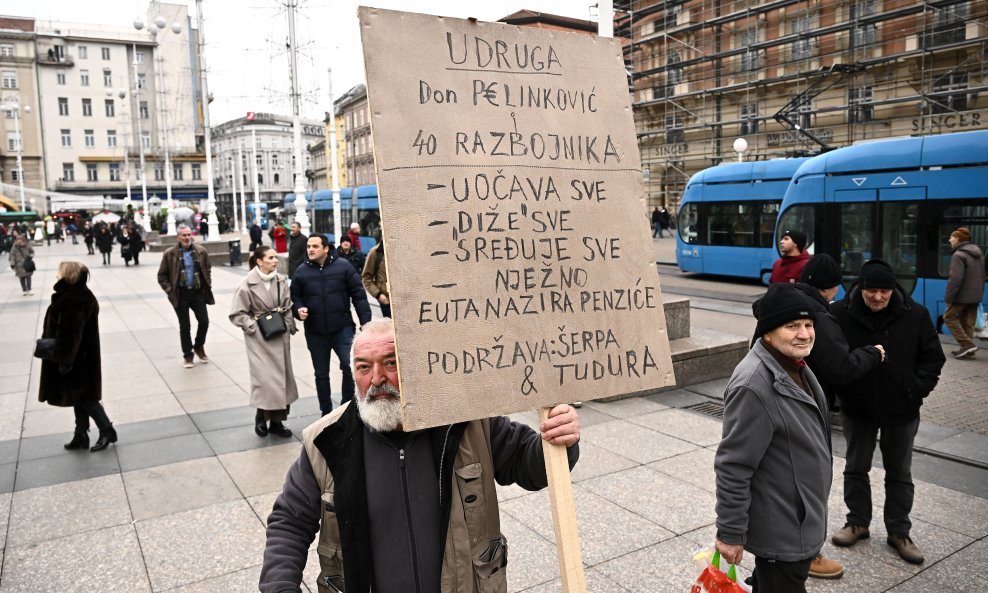 UDRUGA
Don P€LINKOVIĆ
i
40 RAZBOJNIKA
- UOČAVA SVE
- „DIŽE" SVE
- „SREĐUJE SVE
- NJEŽNO
EUTANAZIRA PENZIĆE
PODRŽAVA: ŠERPA
& TUDURA
SINGER
SINGER